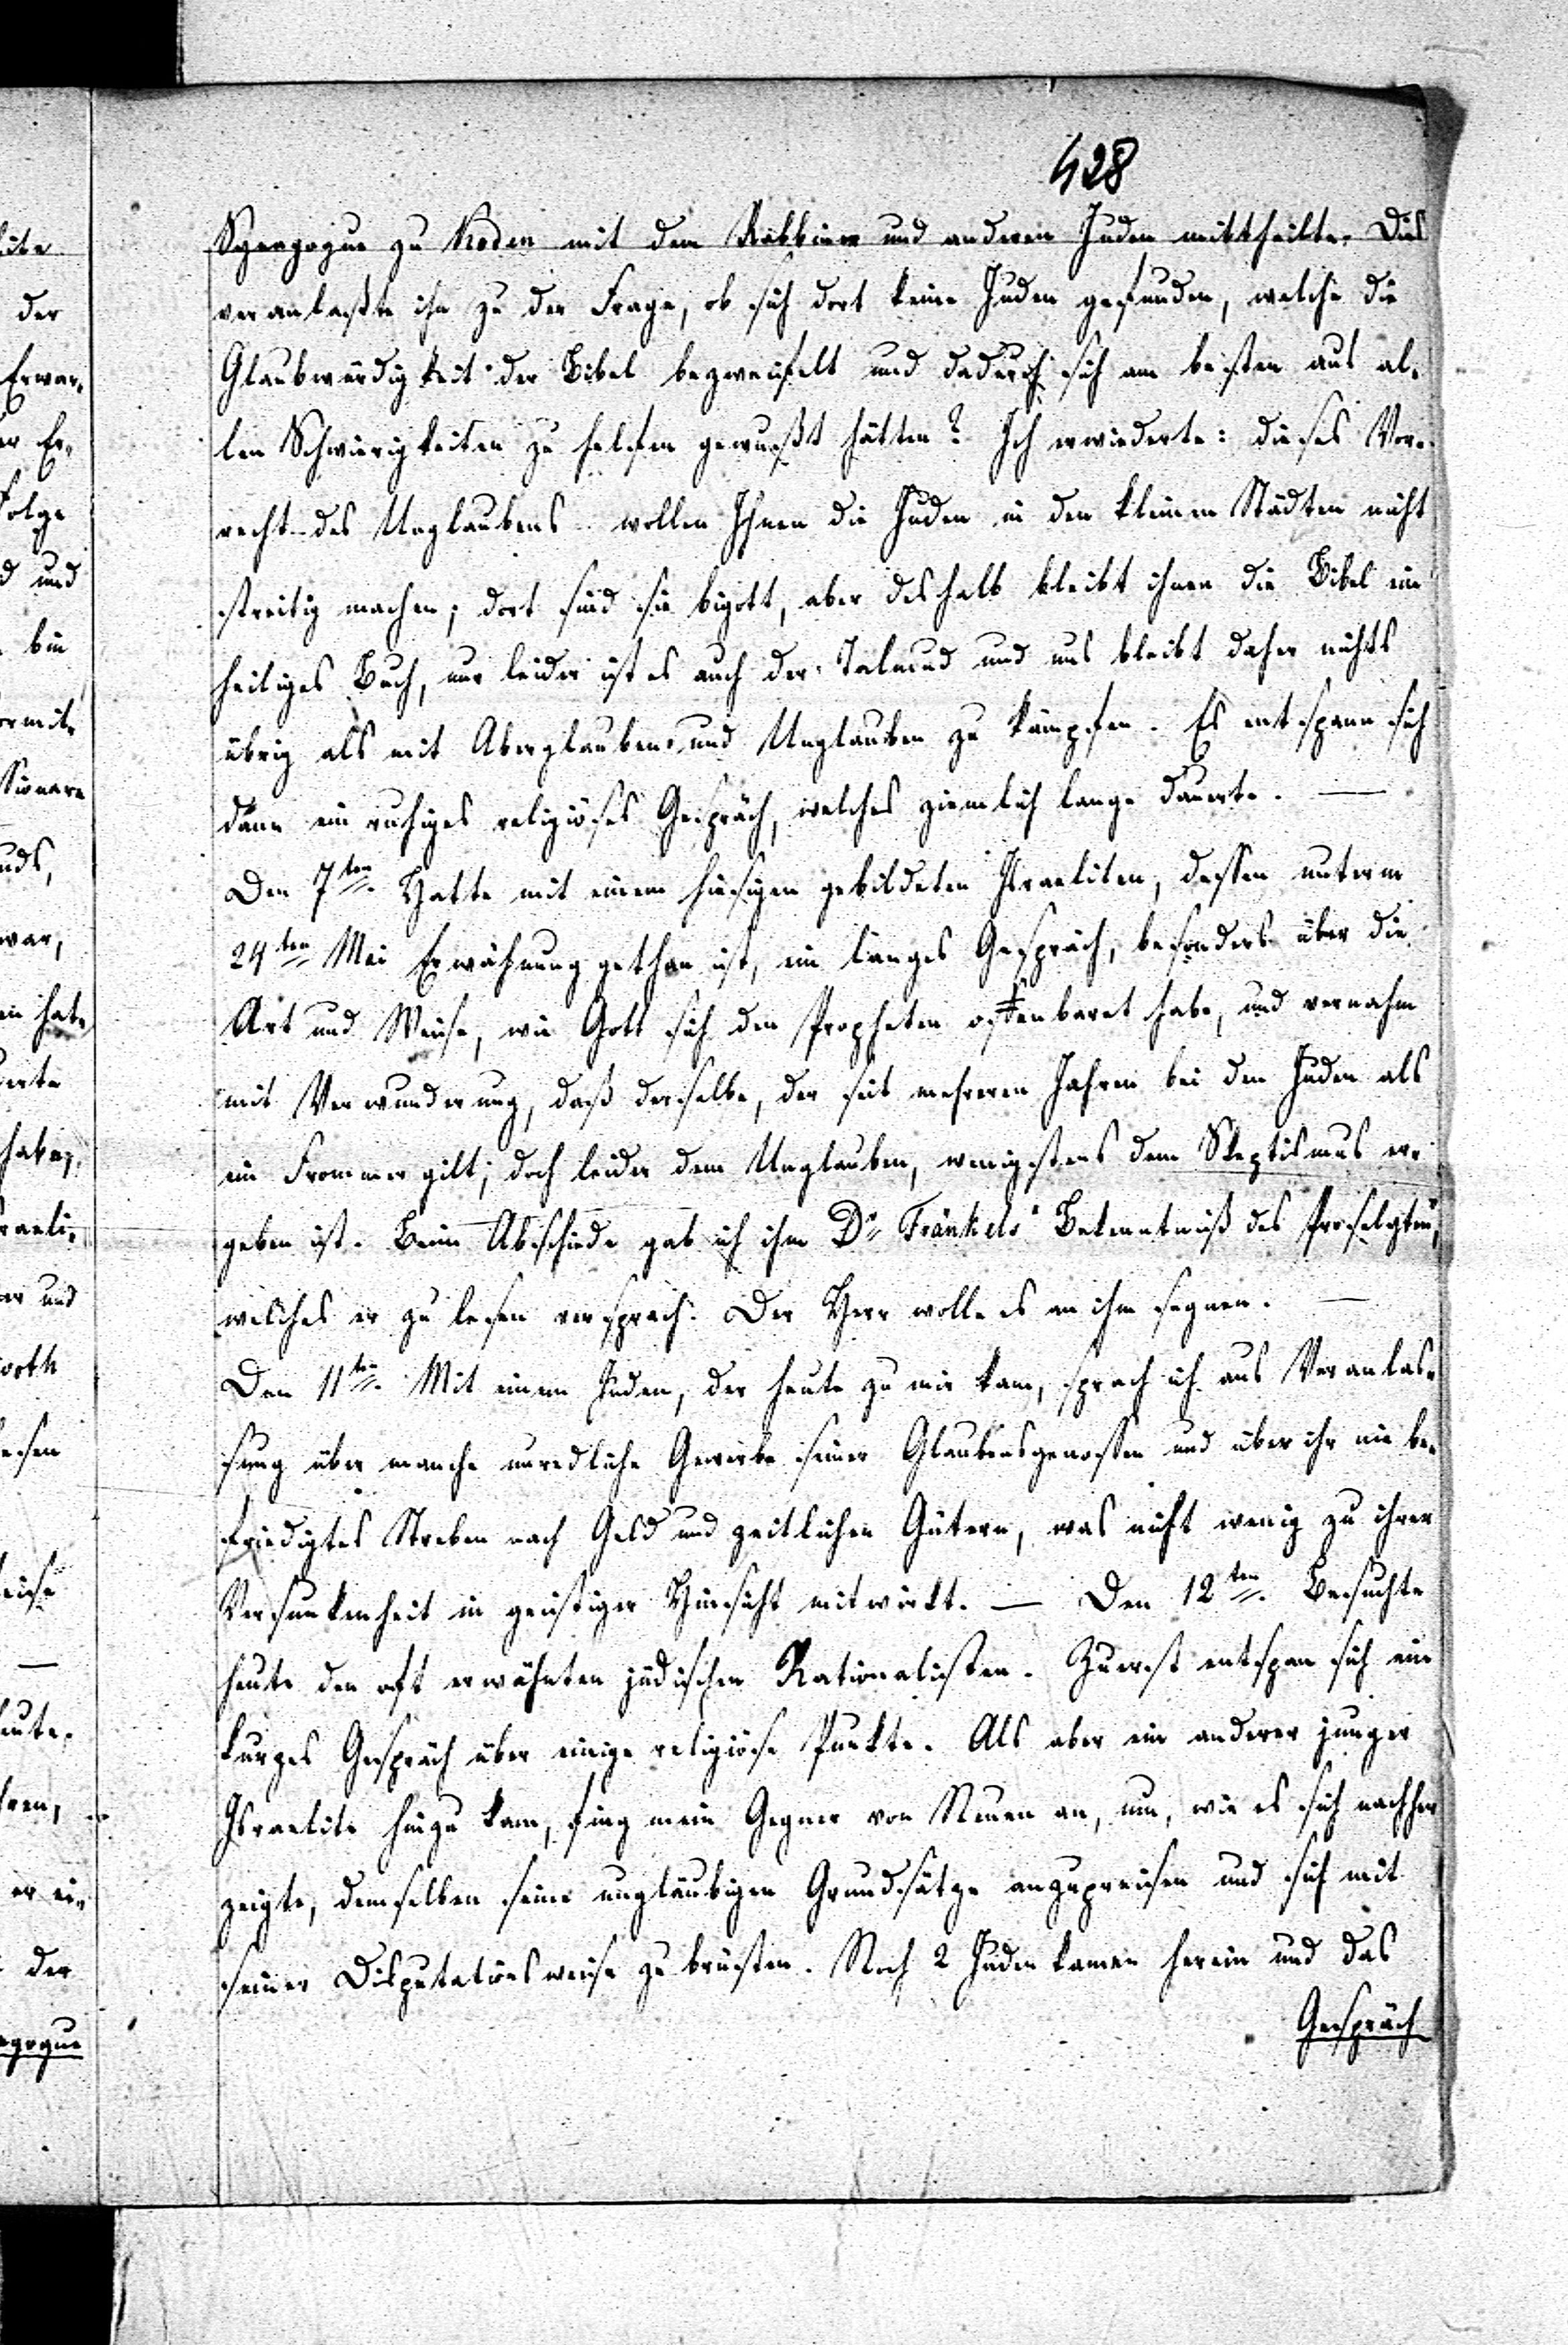 428
Synagogue zu Koden mit dem Rabbiner und anderen Juden mittheilte. Dies
veranlaßte ihn zu der Frage, ob sich dort keine Juden gefunden, welche die
Glaubwürdigkeit der Bibel bezweifelt und dadurch sich am besten aus al-
len Schwierigkeiten zu helfen gewußt hätten? Ich erwiederte: dieses Vor-
recht des Unglaubens wollen Ihnen die Juden in den kleinen Städten nicht
streitig machen; dort sind sie bigott, aber deshalb bleibt ihnen die Bibel ein
heiliges Buch, nur leider ist es auch der Talmud und uns bleibt daher nichts
übrig als mit Aberglauben und Unglauben zu kämpfen. Es entspann sich
dann ein ruhiges religiöses Gespräch, welches ziemlich lange dauerte. —
Den 7ten Hatte mit einem hiesigen gebildeten Israeliten, dessen unterm
24ten Mai Erwähnung gethan ist, ein langes Gespräch, besonders über die
Art und Weise, wie Gott sich den Propheten offenbaret habe, und vernahm
mit Verwunderung, daß derselbe, der seit mehreren Jahren bei den Juden als
ein Frommer gilt, doch leider dem Unglauben, wenigstens dem Skeptismus er-
geben ist. Beim Abschiede gab ich ihm Dr Fränkels Bekenntniß des Proselyten,
welches er zu lesen versprach. Der Herr wolle es an ihm segnen. —
Den 11ten. Mit einem Juden, der heute zu mir kam, sprach ich aus Veranlas-
sung über manche unredliche Gewerbe seiner Glaubensgenossen und über ihr nie be-
friedigtes Streben nach Geld und zeitlichen Gütern, was nicht wenig zu ihrer
Versunkenheit in geistiger Hinsicht mitwirkt. — Den 12ten. Besuchte
heute den oft erwähnten jüdischen Rationalisten. Zuerst entspan sich ein
kurzes Gespräch über einige religiöse Punkte. Als aber ein anderer junger
Israelite hinzu kam, fing mein Gegner von Neuen an, um, wie es sich nachher
zeigte, demselben seine ungläubigen Grundsätze anzupreisen und sich mit
seiner Disputationsweise zu brüsten. Noch 2 Juden kamen herein und das
Gespräch